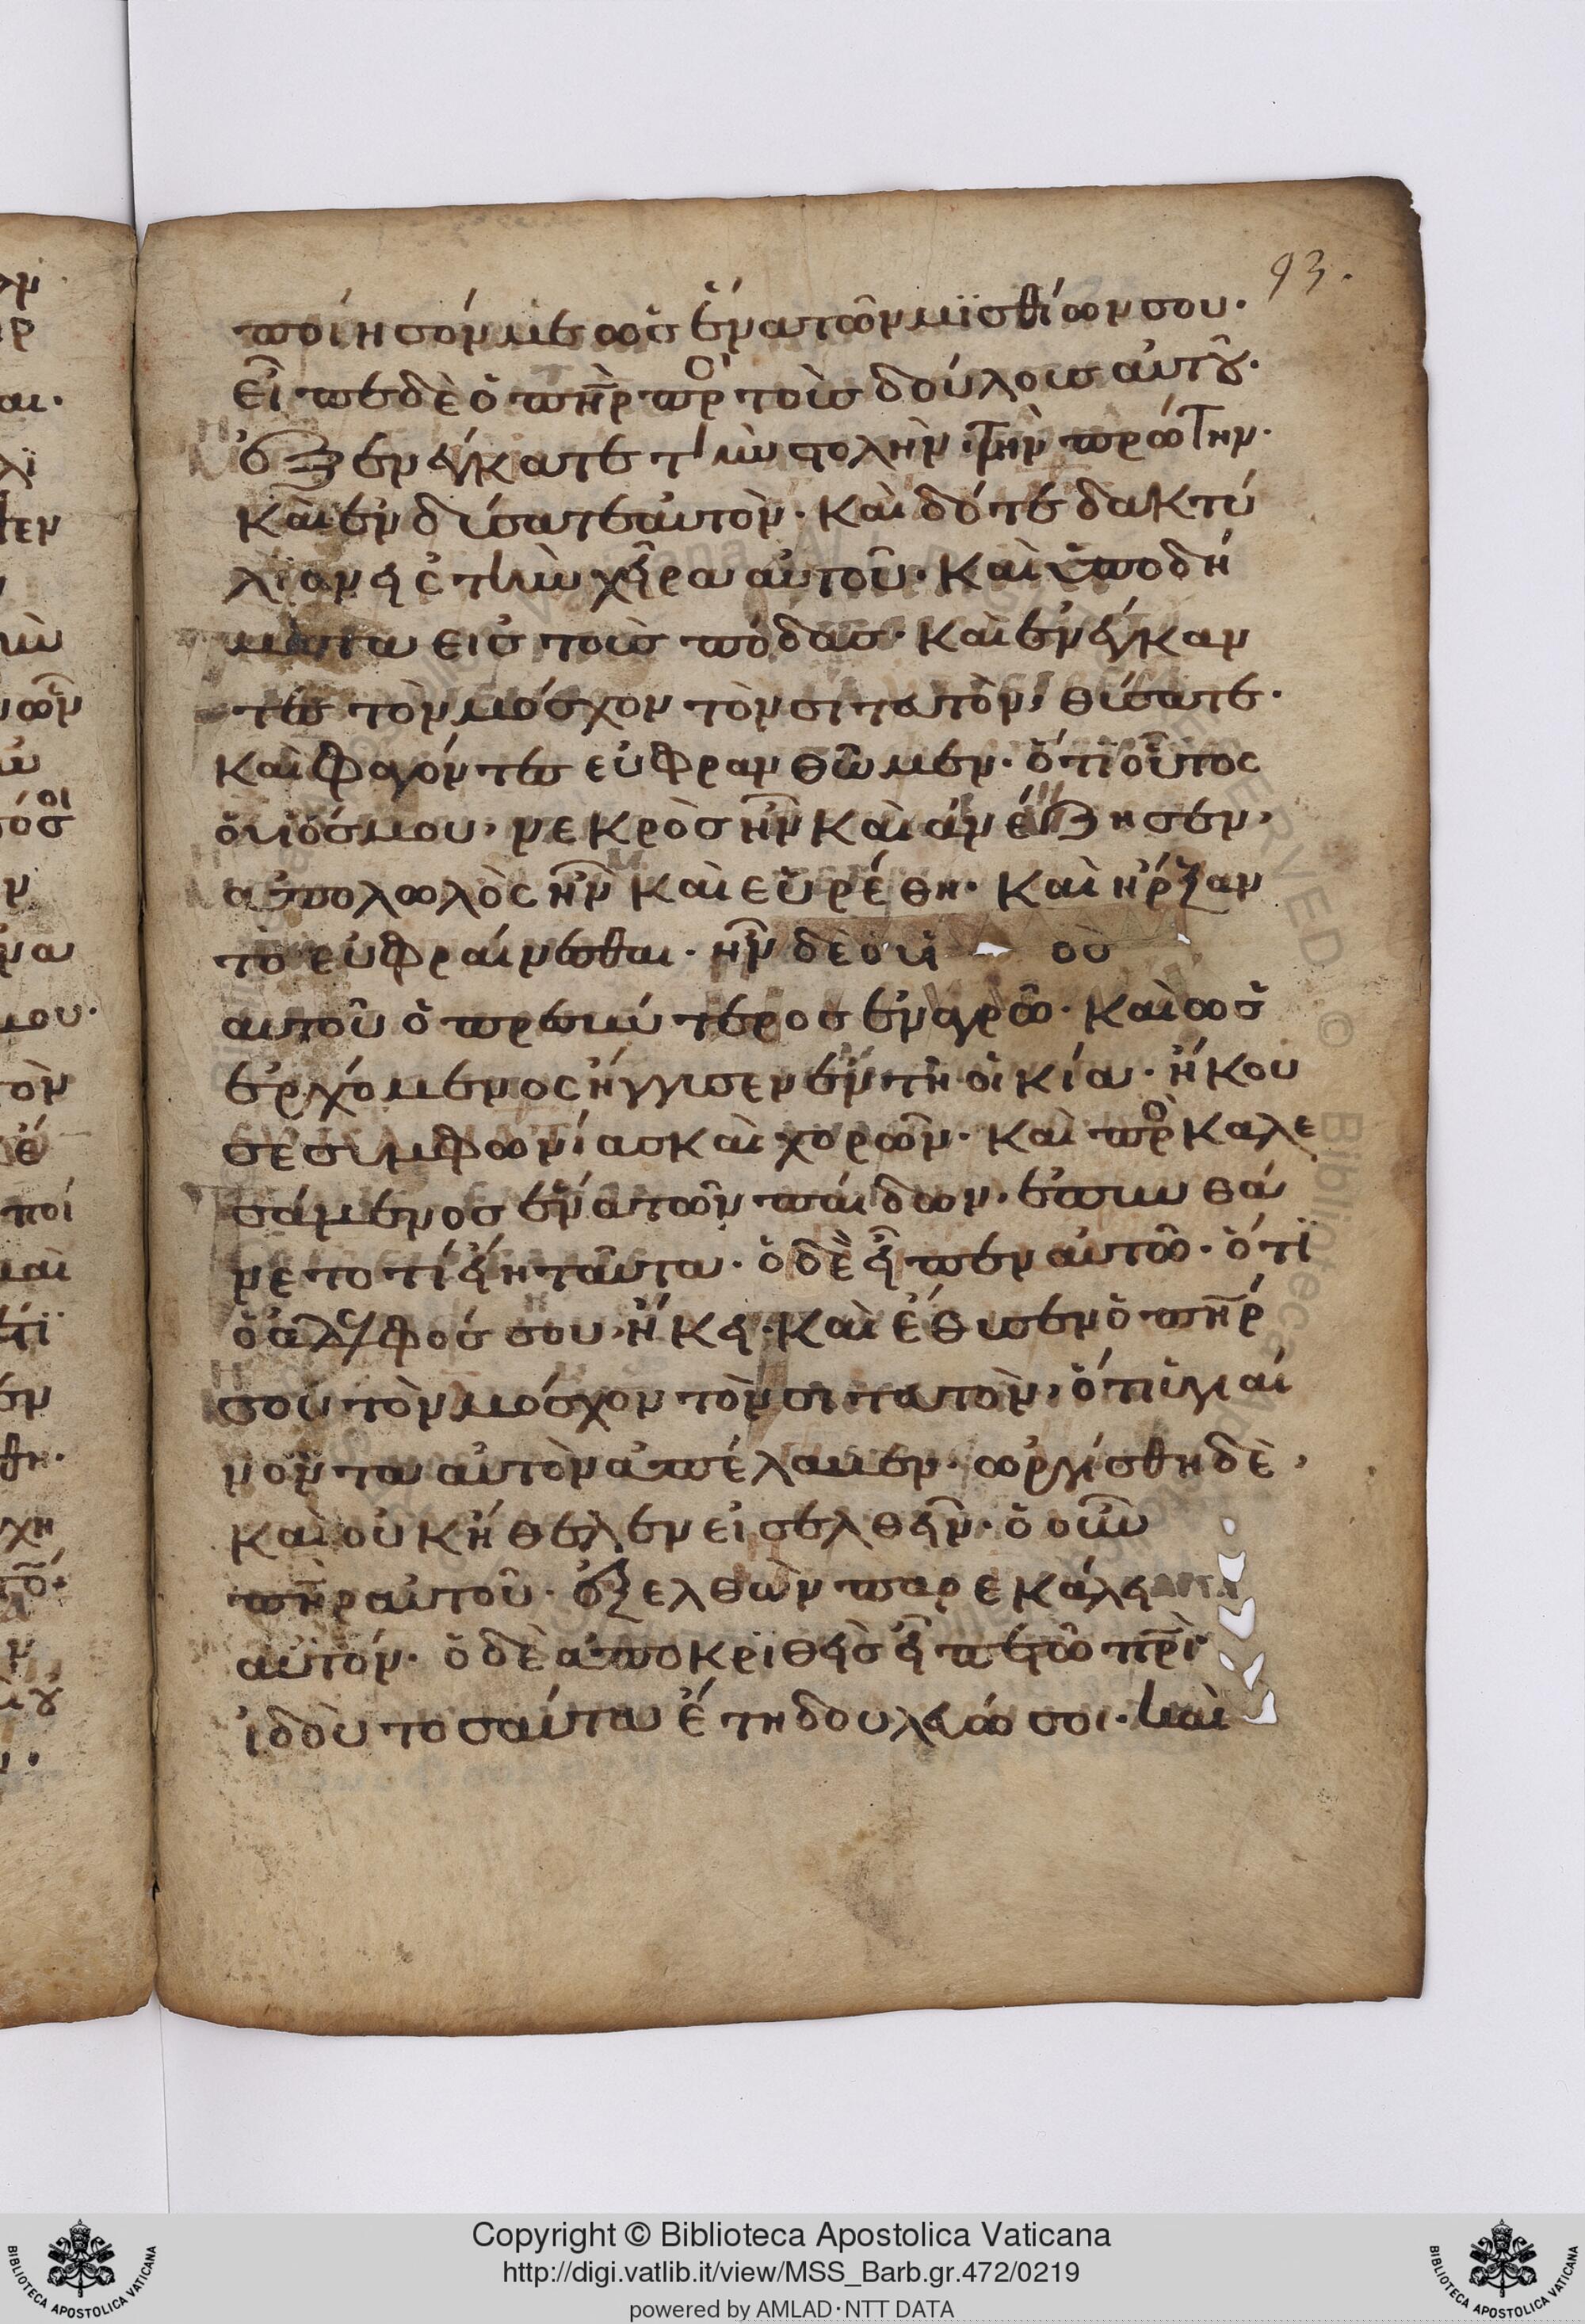 93.
ποίησόν με ὡς ἕνα τῶν μϊσθίων σου·
Εἶπε δὲ ὁ πη̅ρ πρ̥ο τοὺς δούλους αὐτοῦ·
ἐξενέγκατε τὴν στολὴν τὴν πρώτην·
καὶ ἐνδύσατε αὐτὸν· καὶ δότε δακτύ
λϊον εἰς τὴν χεῖρα αὐτοῦ· καὶ ὑποδή
ματα εἰς τοὺς πόδας· καὶ ἐνέγκαν
τες τὸν μόσχον τὸν σιτευτὸν, θύσατε·
καὶ φαγόντες εὐφρανθῶμεν· ὅτι οὗτος
ὁ υἱός μου, νεκρὸς ἦν καὶ ἀνέζησεν,
ἀπολωλὸς ἦν καὶ εὑρέθη· καὶ ἤρξαν
το εὐφραίνεσθαι· ἦν δὲ ὁ υἱ ὸσ
αυτοῦ ὁ πρεσβύτερος ἐν ἀγρῶ· καὶ ὡς
ἐρχόμενος ἤγγισεν ἐν τῆ οἰκία· ἤκου
σε συμφωνίας καὶ χορῶν· καὶ πρ̥ο καλε
σάμενος ἕνα τῶν παίδων, ἐπυνθά
νετο τί εἴη ταῦτα· ὁ δὲ εἶπεν αὐτῶ· ὅτϊ
ὁ ἀδελφός σου ἥκει· καὶ ἔθυσεν ὁ πη̅ρ
σου τὸν μόσχον τὸν σιτευτὸν, ὅτι ὑγιαί
νοντα αὐτὸν ἀπέλαβεν· ὠργίσθη δὲ,
καὶ οὐκ ἤθελεν εἰσελθεῖν· ὁ οὖν
πη̅ρ αὐτοῦ· ἐξελθὼν παρεκάλει
αὐτόν· ὁ δὲ ἀποκριθεὶς εἶπε τῶ πρ̅ι·
ἰδοὺ τοσαῦτα ἔτη δουλεύω σοι· καὶ
Copyright © Biblioteca Apostolica Vaticana
http://digi.vatlib.it/view/MSS_Barb.gr.472/0219
powered by AMLAD·NTT DATA
BIBLIOTECA APOSTOLICA VATICANA
BIBLIOTECA APOSTOLICA VATICANA